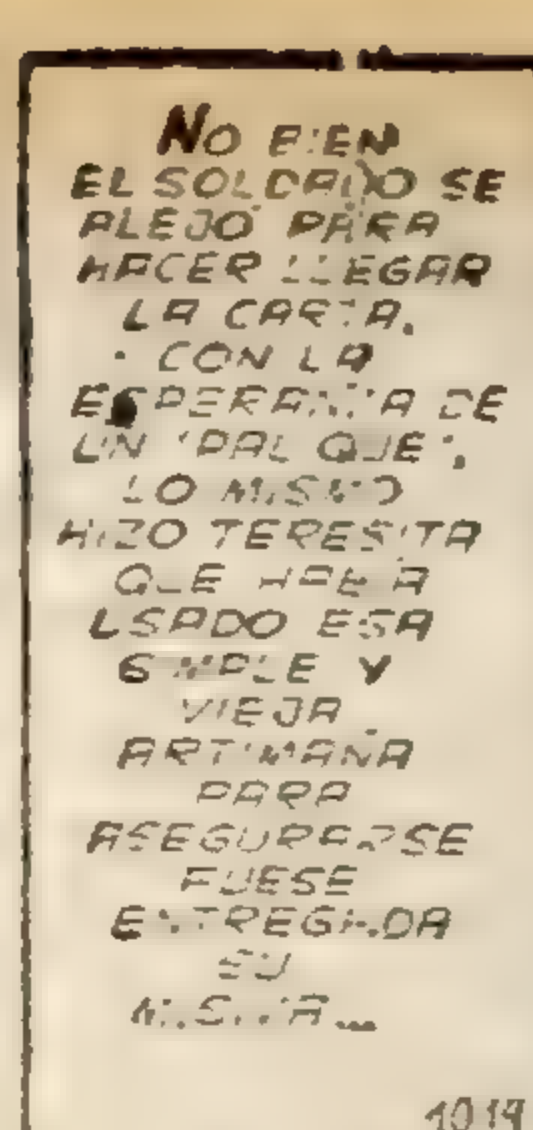 NO BIEN
EL SOLDADO SE
ALEJÓ PARA
HACER LLEGAR
LA CARTA,
CON LA
ESPERANZA DE
UN "PAL QUE",
LO MISMO
HIZO TERESITA
QUE HABÍA
USADO ESA
SIMPLE Y
VIEJA
ARTIMAÑA
PARA
ASEGURARSE
FUESE
ENTREGADA
SU
MISIVA...